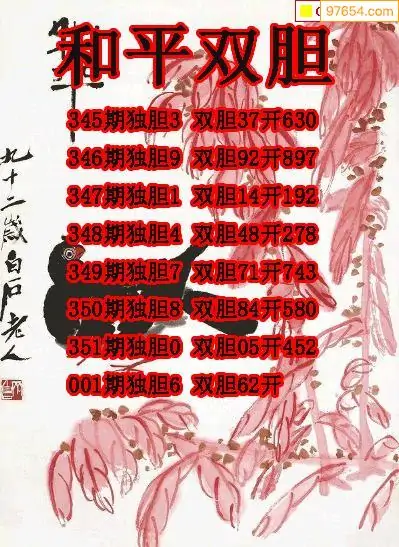 97654.com
和平双胆
345期独胆3 双胆37开630
346期独胆9 双胆92开897
347期独胆1 双胆14开192
348期独胆4 双胆48开278
349期独胆7 双胆71开743
350期独胆8 双胆84开580
351期独胆0 双胆05开452
001期独胆6 双胆62开
九十二岁白石老人